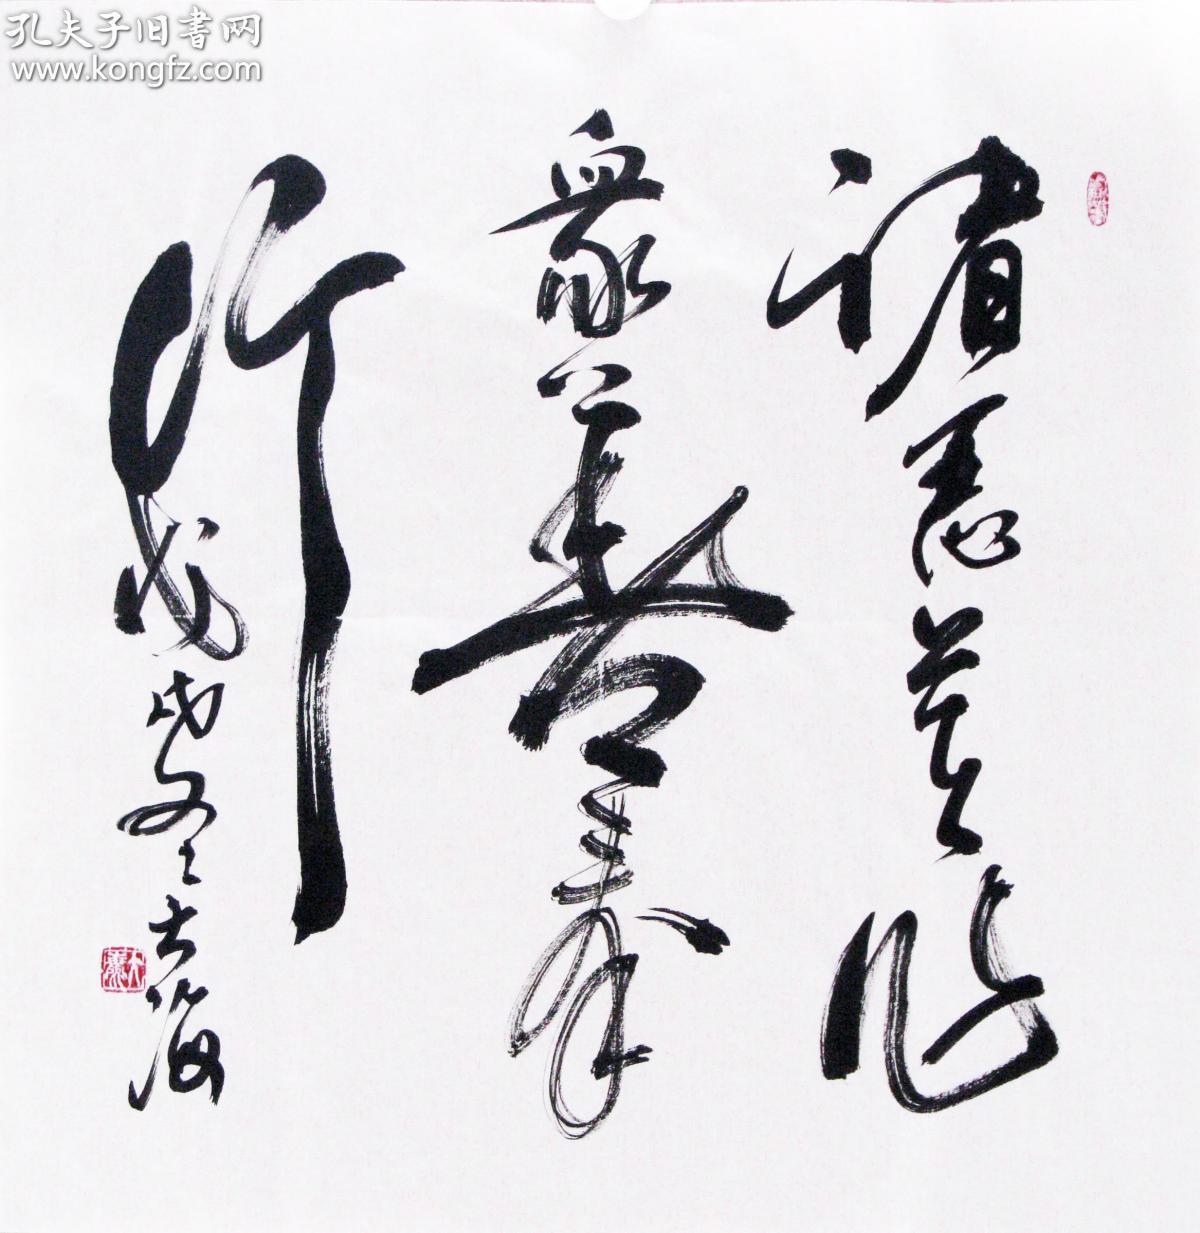 孔夫子旧书网
www.kongfz.com
诸恶莫作
眾善奉
行
戊戌冬大海